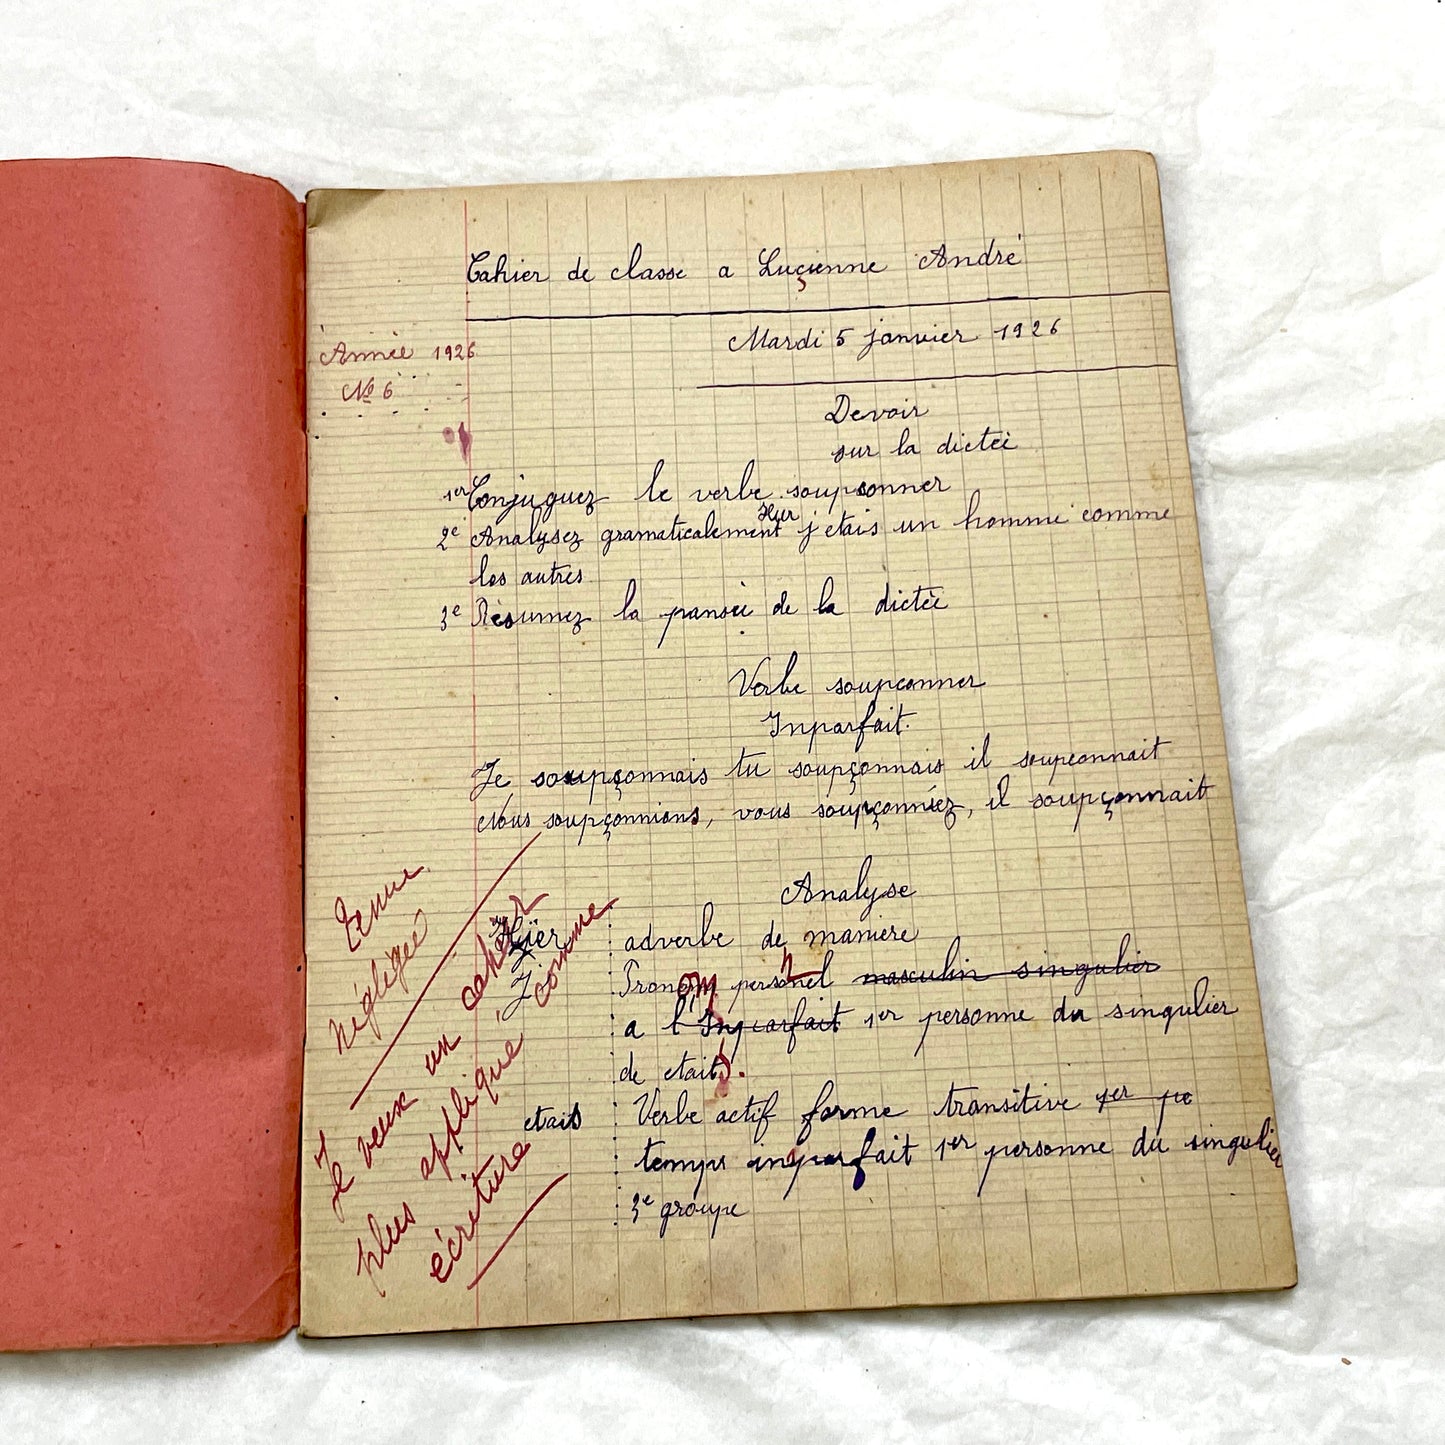 Cahier de classe a Luçienne André
Mardi 5 janvier 1926
Année 1926
No 6
Devoir
sur la dictée
1er Conjuguez le verbe soupsonner
2e Analysez gramaticalement Hier j'etais un homme comme
les autres
3e Résumez la pansée de la dictée
Verbe soupconner
Inparfait.
Je soupçonnais tu soupçonnais il soupconnait
Nous soupçonnions, vous soupçonniez, il soupçonnait
Analyse
Hier : adverbe de maniere
J' : Pronom personnel masculin singulier
a l'Inparfait 1er personne du singulier
de etais.
etais : Verbe actif forme transitive 1er pe
temps imparfait 1er personne du singulier
3e groupe
Tenue
négligée
Je veux un cahier
plus appliqué comme
écriture